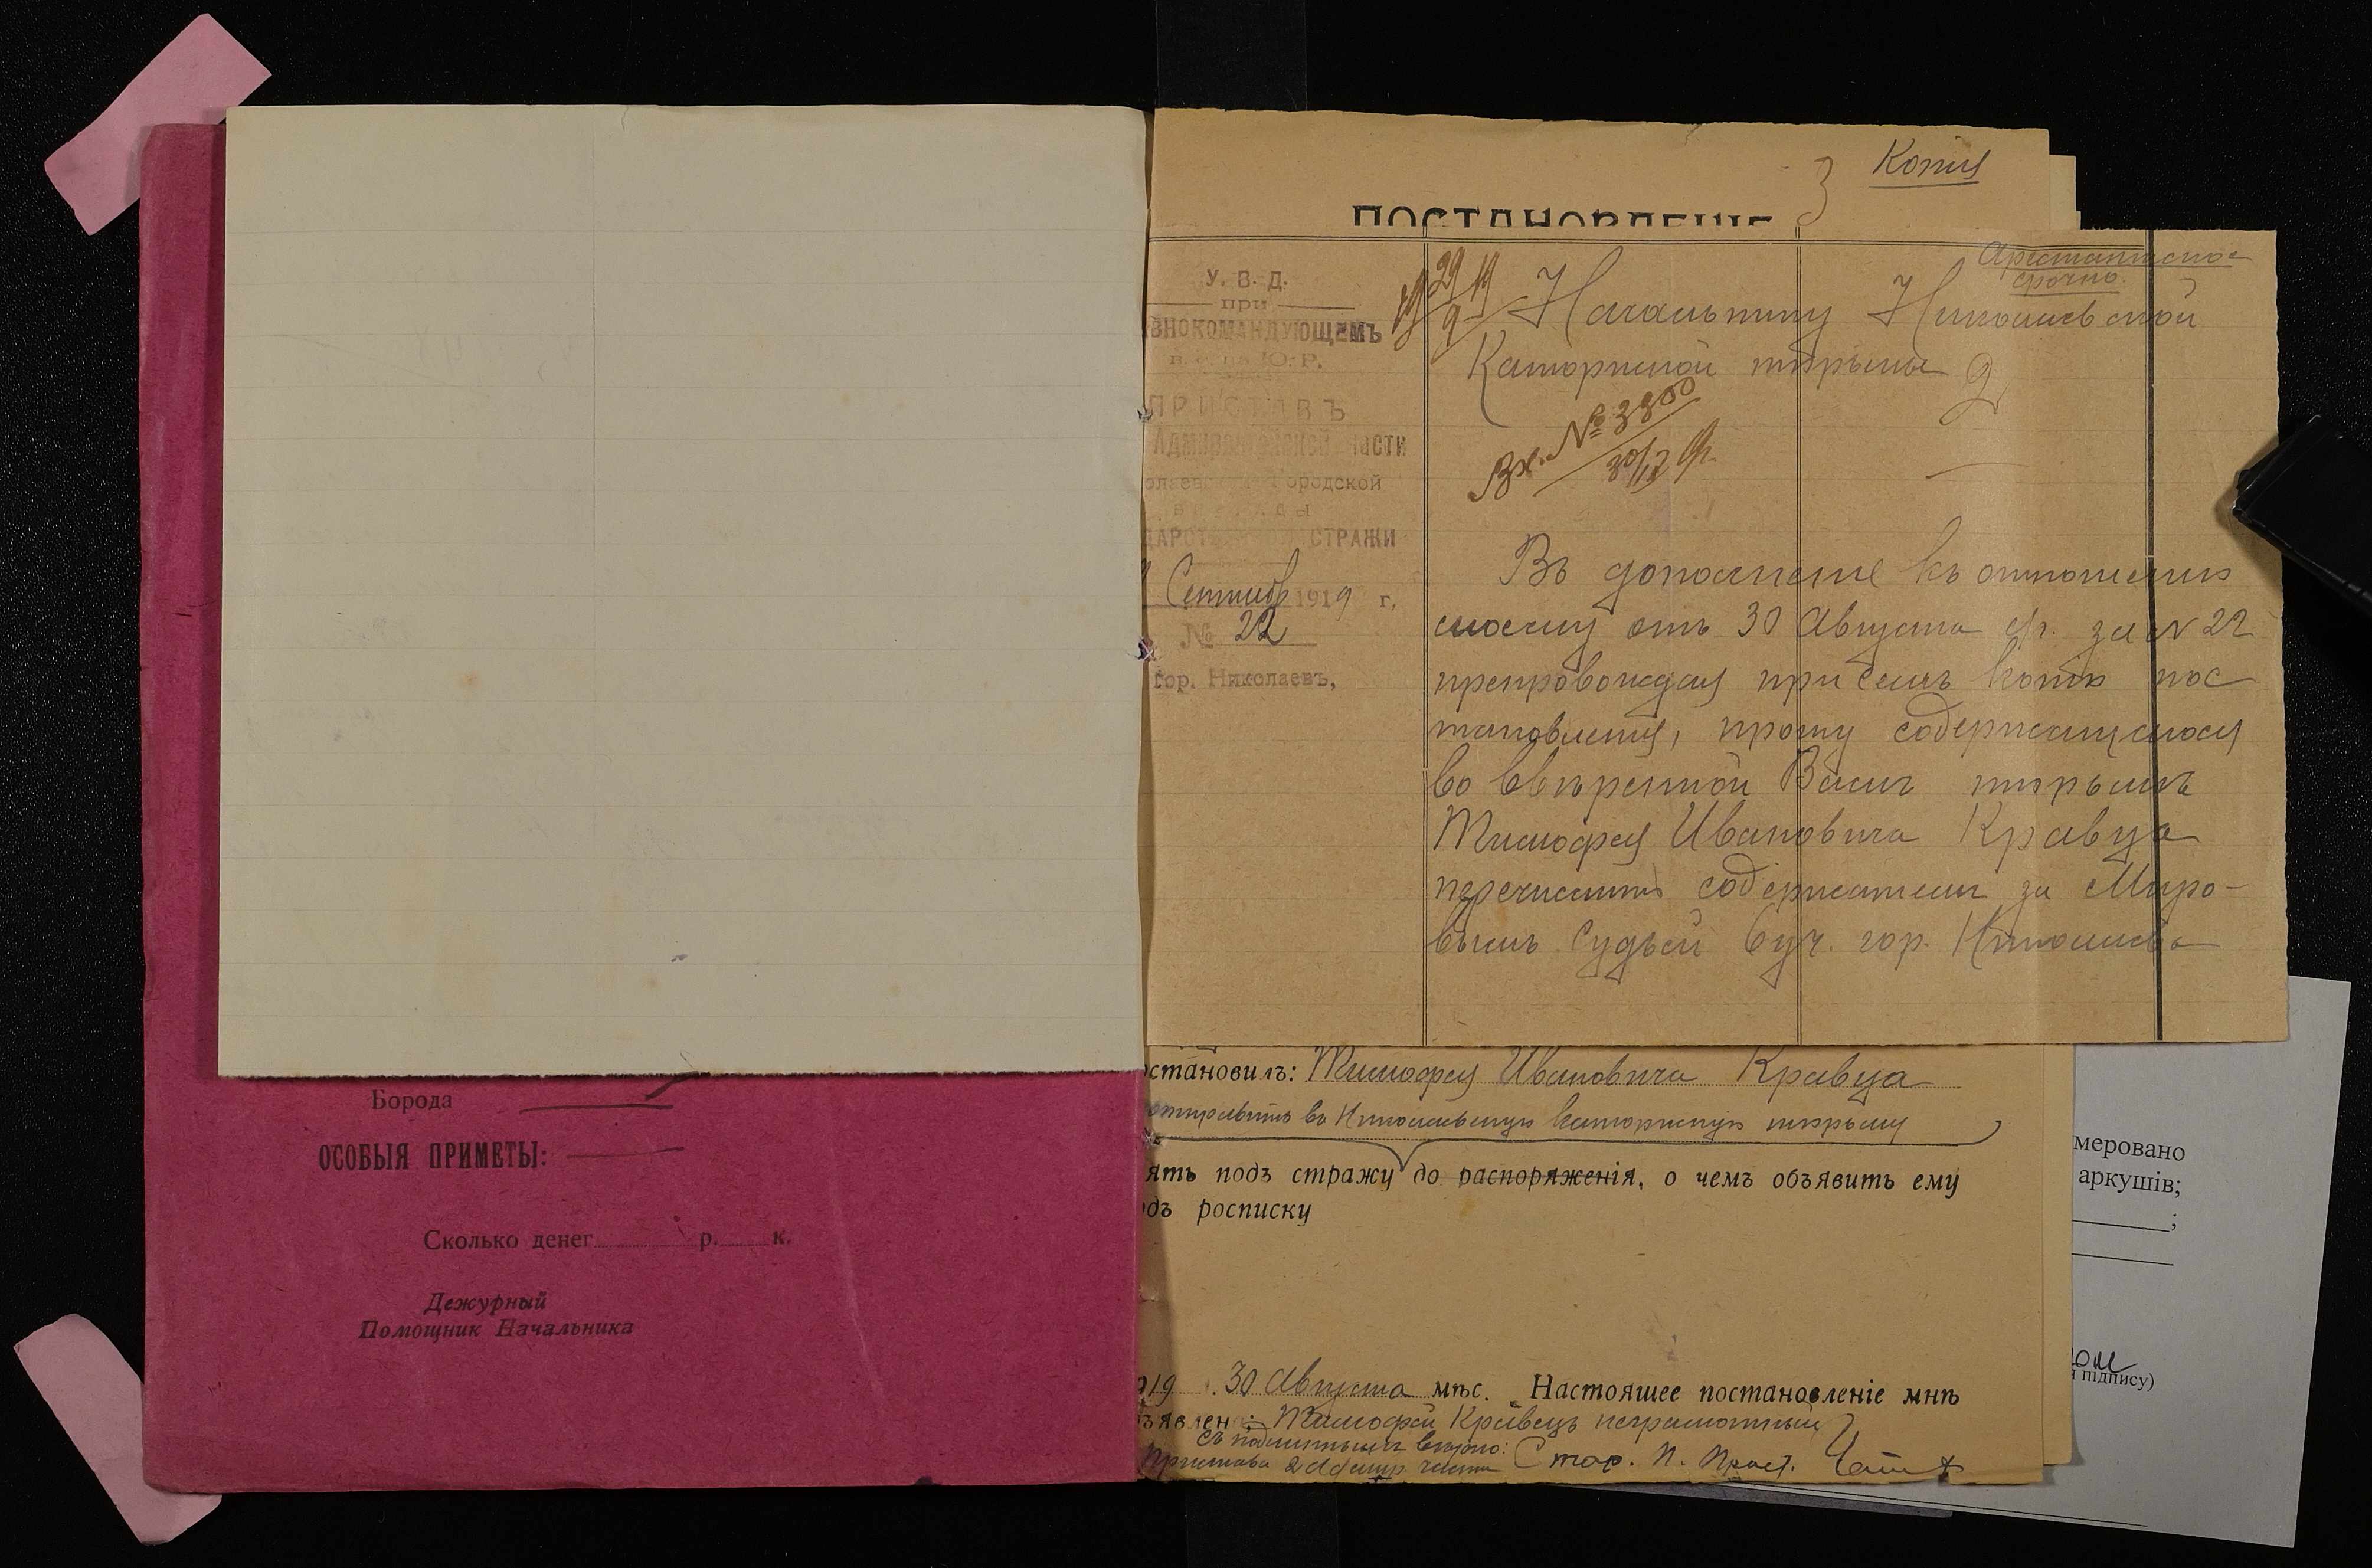 Борода
ОСОБЫЯ ПРИМЕТЫ:
Сколько денег р. к.
Дежурный
Помощник Начальника
Копія
3
ПОСТАНОВЛЕНІЕ
Арестантское
срочно.
У. В. Д.
при
внокомандующемъ
Ю. Р.
ПРИСТАВЪ
Адмиралтейской части
Городской
СТРАЖИ
Сентября 1919 г.
№ 22
гор. Николаевъ,
29 19
9
Начальнику Николаевской
Каторжной тюрьмы
2
Вх. № 3800
30/IX
Въ дополненіе къ отношенію
моему отъ 30 Августа с/г. за № 22
препровождая при семъ копію пос
тановленія, прошу содержащагося
во ввѣренной Вамъ тюрьмѣ
Тимофея Ивановича Кравца
перечислить содержаніемъ за Миро-
вымъ Судьей 6 уч. гор. Николаева
остановилъ: Тимофея Ивановича Кравца
отправить въ Николаевскую каторжную тюрьму
ять подъ стражу до распоряженія, о чемъ объявить ему
дъ росписку
919 30 Августа мѣс. Настоящее постановленіе мнѣ
ъявлено: Тимофей Кравецъ неграмотный
Съ подлиннымъ вѣрно:
Пристава 2 Адмир. части Стар. П. Прист.
меровано
аркушів;
;
підпису)